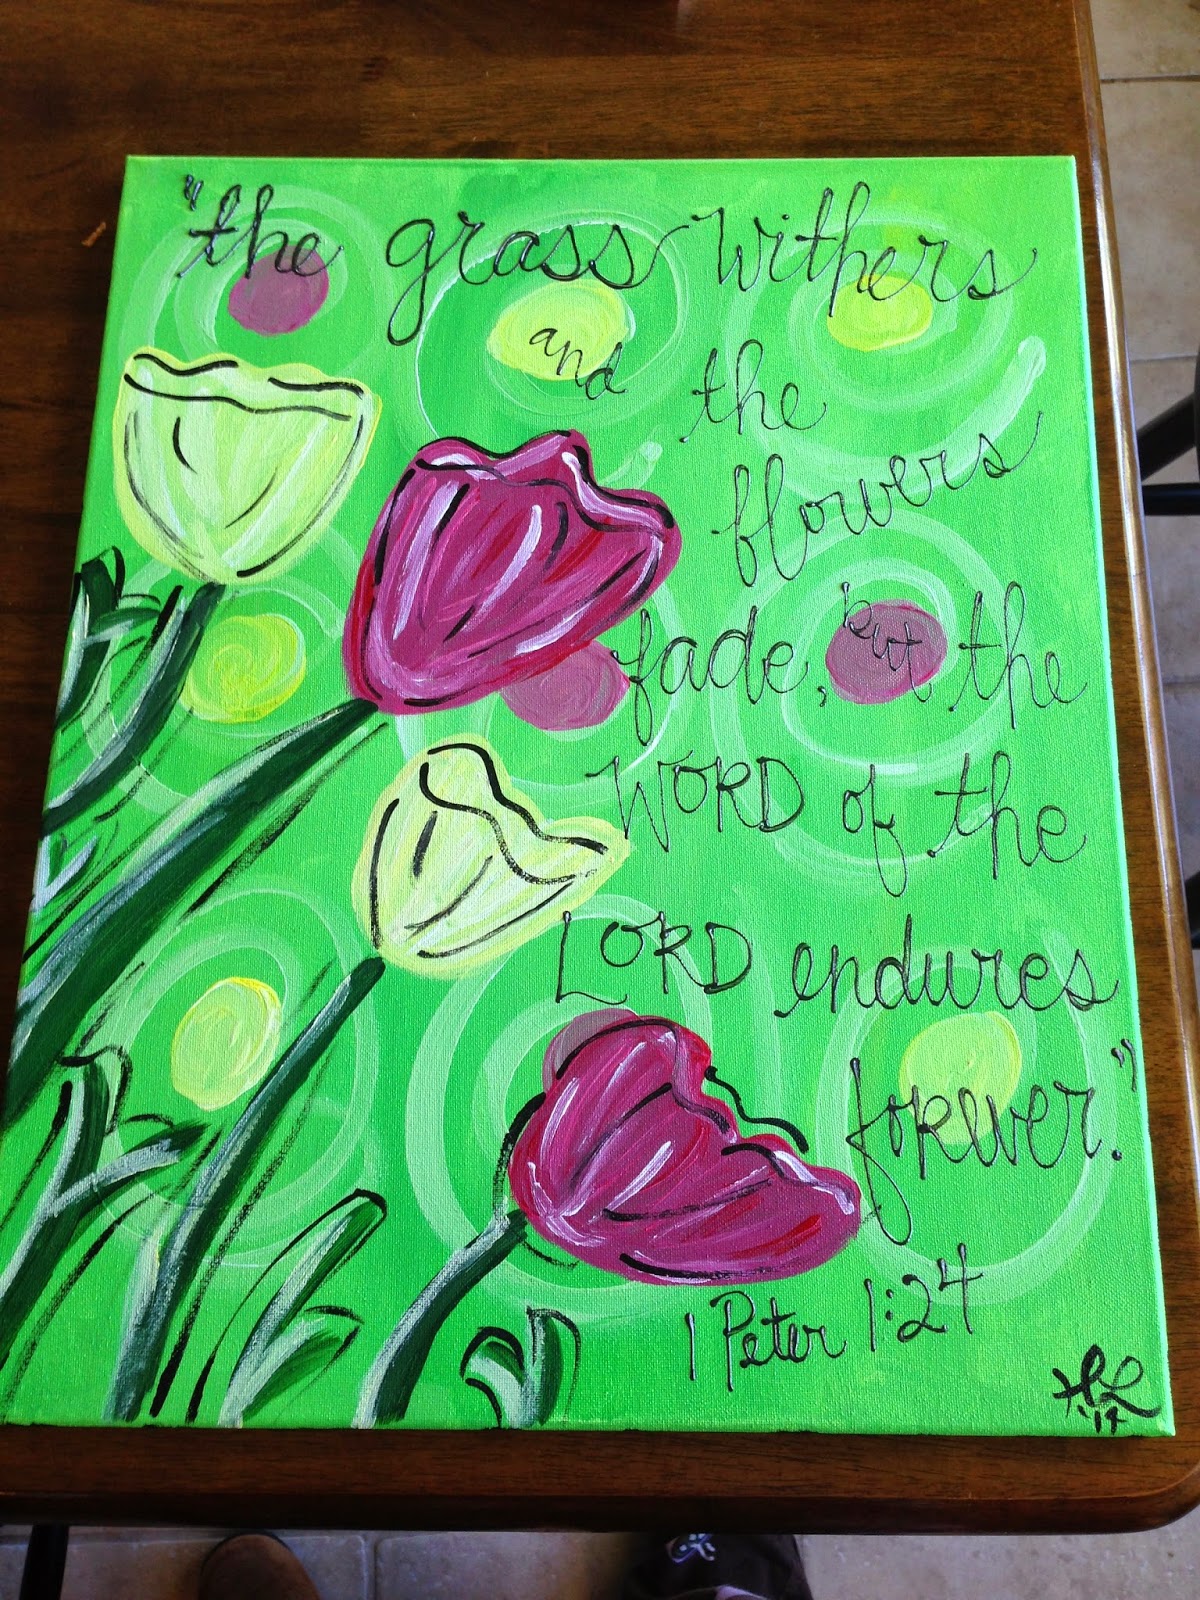 "the grass withers
and the
flowers
fade, but the
WORD of the
LORD endures
forever."
1 Peter 1:24
'14